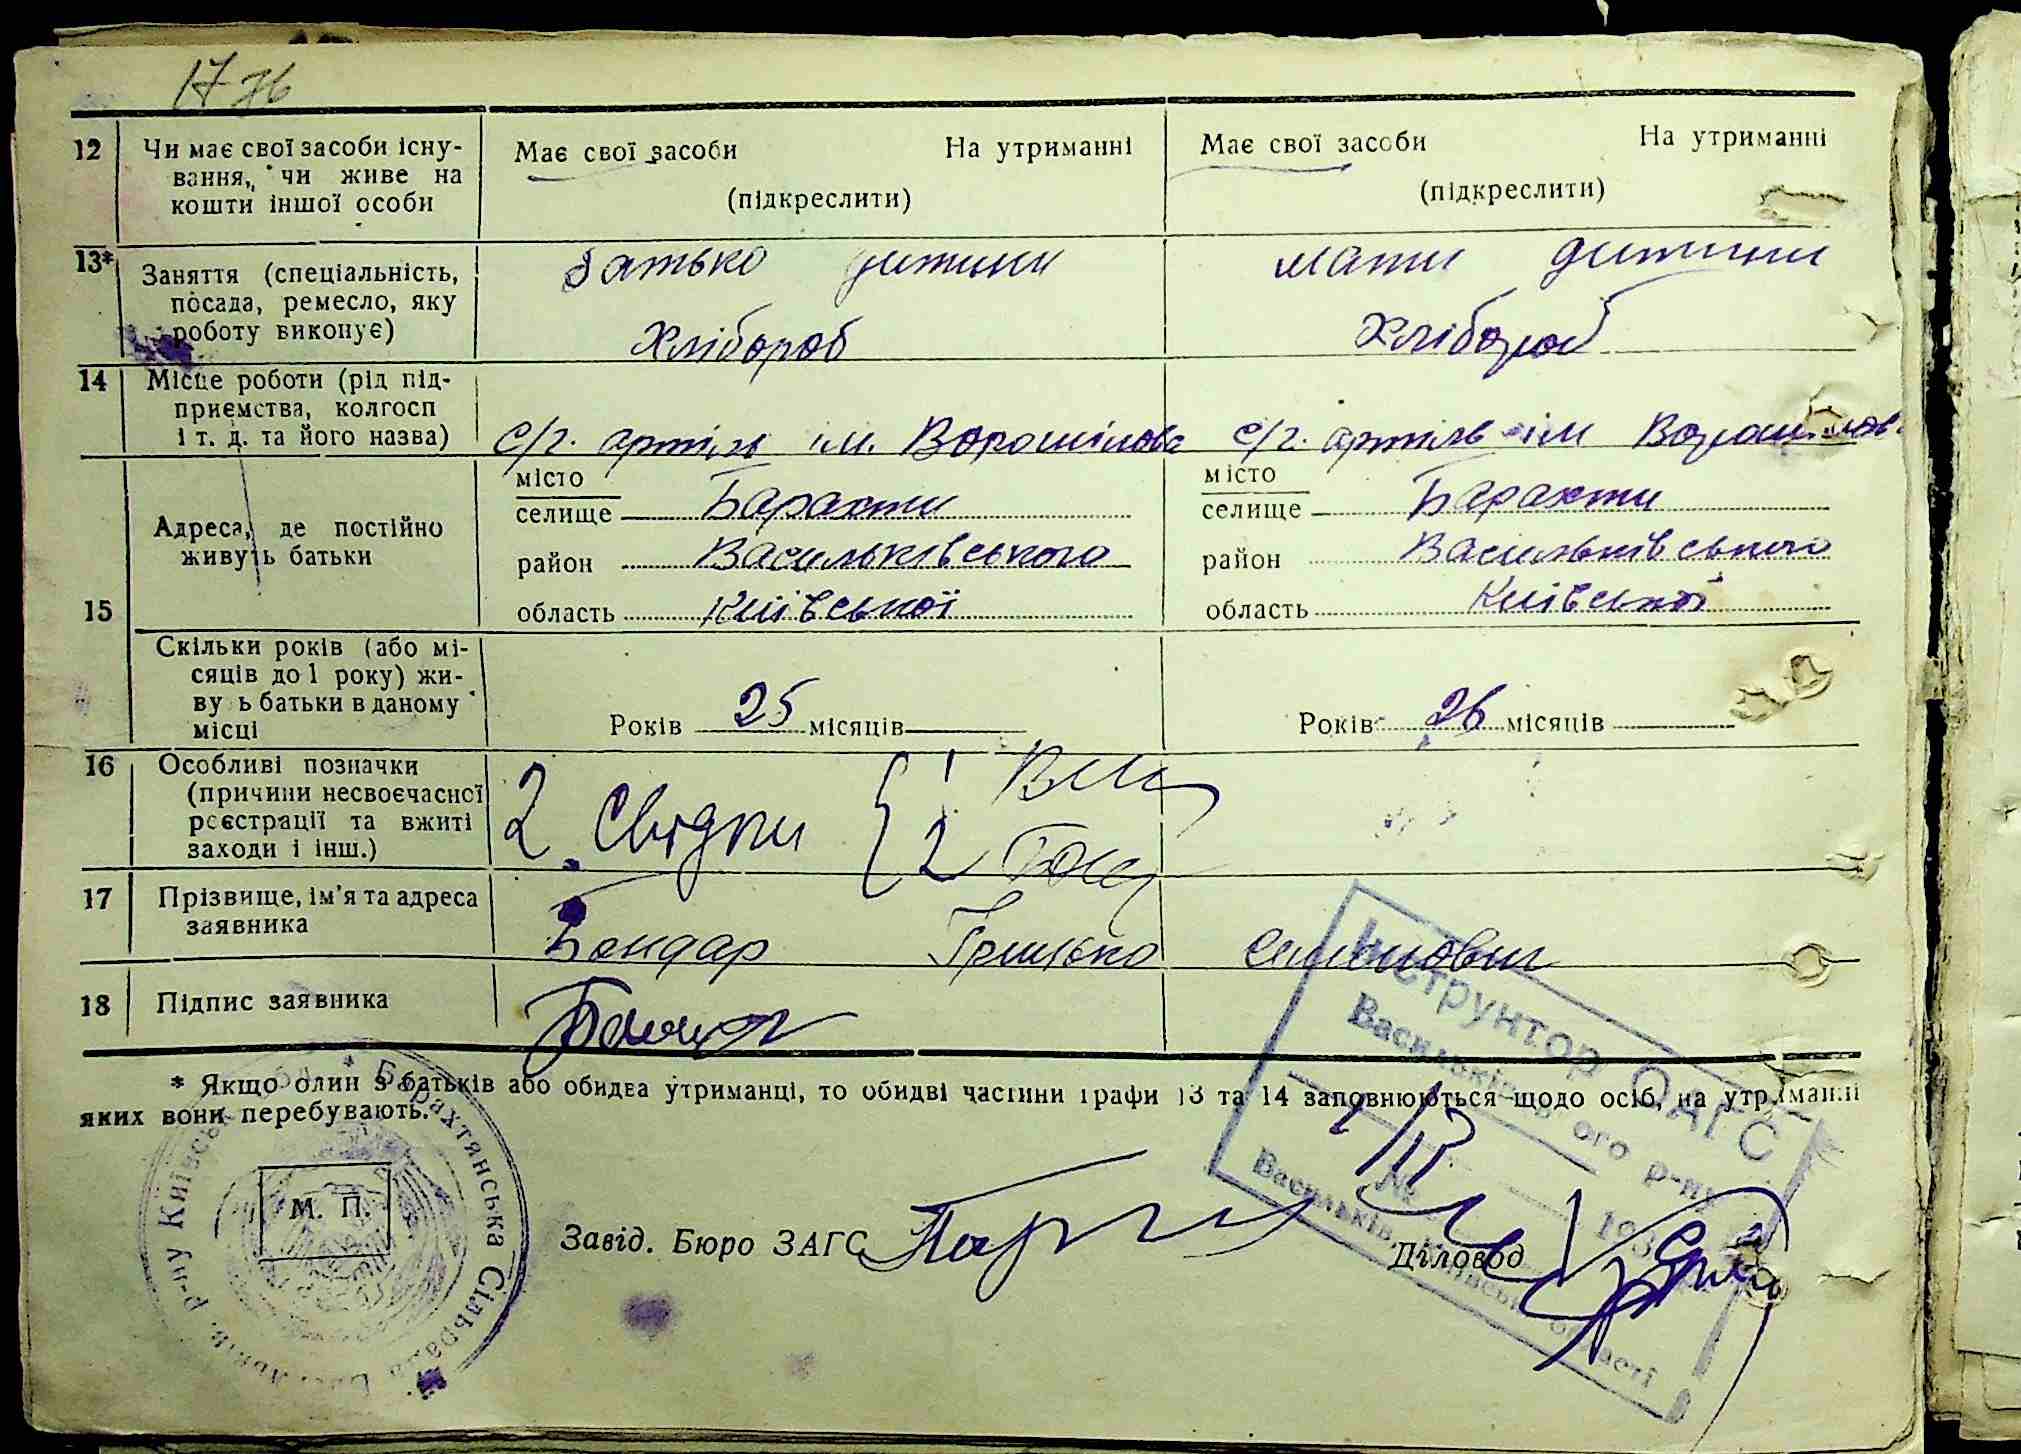 12 Чи має свої засоби існу-
вання, чи живе на
кошти іншої особи
Має свої засоби На утриманні
(підкреслити)
Має свої засоби На утриманні
(підкреслити)
13* Заняття (спеціальність,
посада, ремесло, яку
роботу виконує)
батько дитини
Хлібороб
мати дитини
Хлібороб
14 Місце роботи (рід під-
приємства, колгосп
і т. д. та його назва)
с/г. артіль ім. Ворошилова
с/г. артіль ім Ворошилов
15 Адреса, де постійно
живуть батьки
місто
селище Барахти
район Васильківського
область Київської
місто
селище Барахти
район Васильківського
область Київської
Скільки років (або мі-
сяців до 1 року) жи-
ву ь батьки в даному
місці
Років 25 місяців
Років 26 місяців
16 Особливі позначки
(причини несвоєчасної
реєстрації та вжиті
заходи і інш.)
2. Свідки { 1
2
17 Прізвище, ім'я та адреса
заявника
Бондар Грицько Семенович
18 Підпис заявника
Бондар
* Якщо один з батьків або обидва утриманці, то обидві частини графи 13 та 14 заповнюються щодо осіб, на утриманні
яких вони перебувають.
М. П.
Барахтянська Сільрада
р-ну Київськ
Завід. Бюро ЗАГС
Діловод
Інструктор ОАГС
Васильків ого р-ну
№ 193
Васильків, області